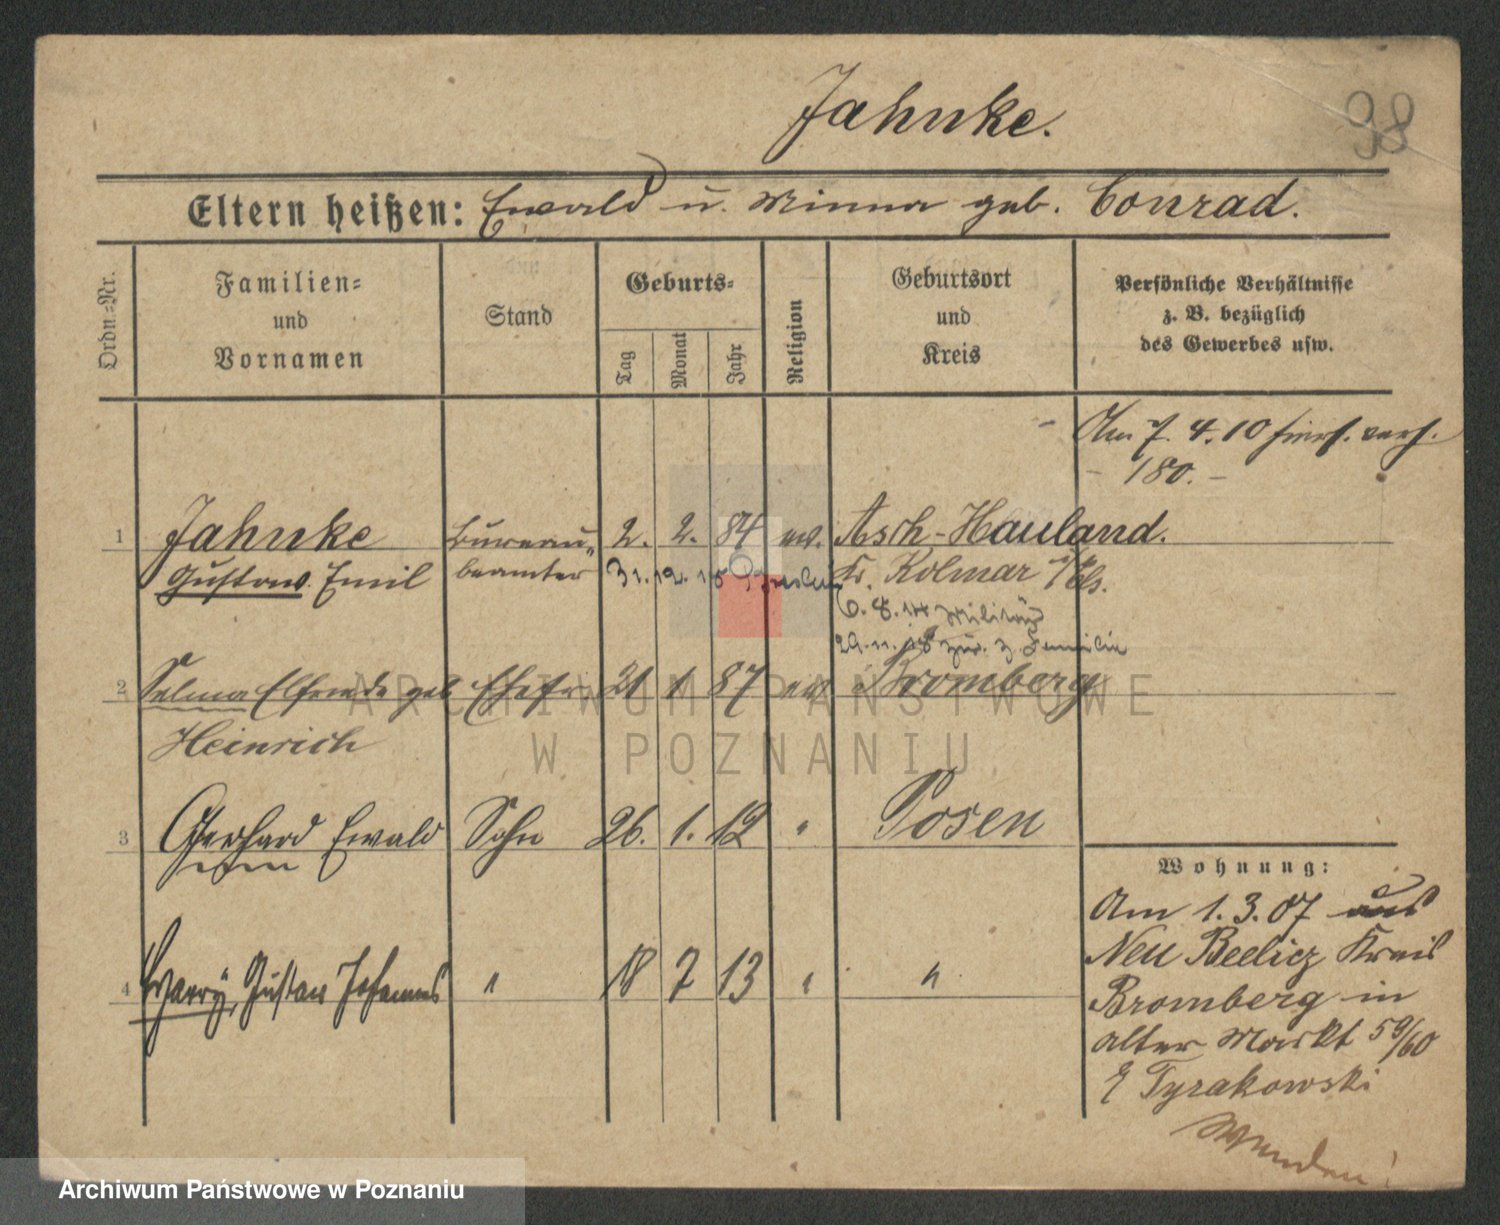 Jahnke.
98
Eltern heißen: Ewald u. Minna geb. Conrad.
Ordn.-Nr.
Familien-
und
Vornamen
Stand
Geburts-
Tag
Monat
Jahr
Religion
Geburtsort
und
Kreis
Persönliche Verhältnisse
z. B. bezüglich
des Gewerbes usw.
Am 7. 4. 10 hiers. verh.
- 180. -
1 Jahnke Bureau- 2. 2. 84 ev. Asch-Hauland.
Gustav Emil beamter 31. 12. 15 Kr. Kolmar i/Ps.
6. 8. 14 Militär
29. 11. 18 zur. z. Familie
2 Selma Elfriede geb Ehefr. 21 1 87 ev. Bromberg
Heinrich
3 Gerhard Ewald Sohn 26. 1. 12 " Posen
4 Harry, Gustav Johannes " 18 7 13 " "
Wohnung:
Am 1. 3. 07 aus
Neu Beelitz Kreis
Bromberg in
Alter Markt 59/60
b/ Tyrakowski
Wenden!
ARCHIWUM PAŃSTWOWE
W POZNANIU
Archiwum Państwowe w Poznaniu